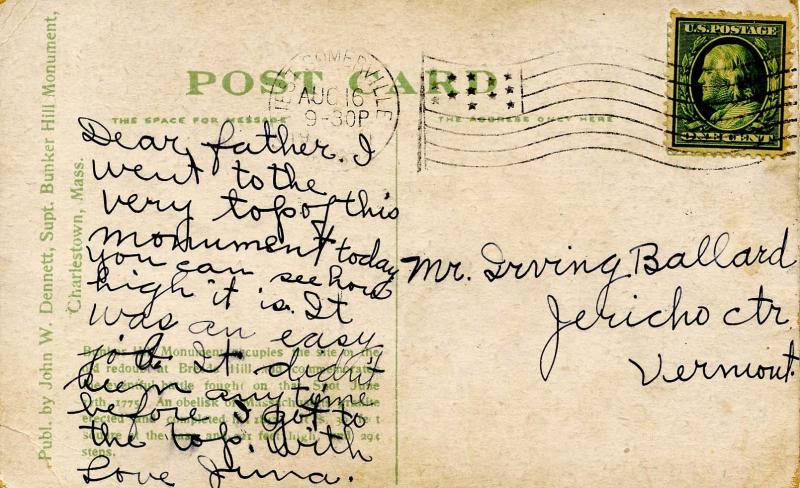 POST CARD
THE SPACE FOR MESSAGE
THE ADDRESS ONLY HERE
U.S. POSTAGE
ONE CENT
SOMERVILLE
AUG 16
9-30P
Publ. by John W. Dennett, Supt. Bunker Hill Monument,
Charlestown, Mass.
Dear father. I
went to the
very top of this
monument today
you can see how
high it is. It
was an easy
It didn't
any time
before I got to
the top. With
Love Juna.
Mr. Irving Ballard
Jericho Ctr
Vermont.
Bunker Hill Monument occupies the site of the
redoubt at Breeds Hill and commemorates
the eventful battle fought on that Spot June
17th, 1775. An obelisk of Massachusetts granite
erected and completed
square at the base and feet high, 294
steps.